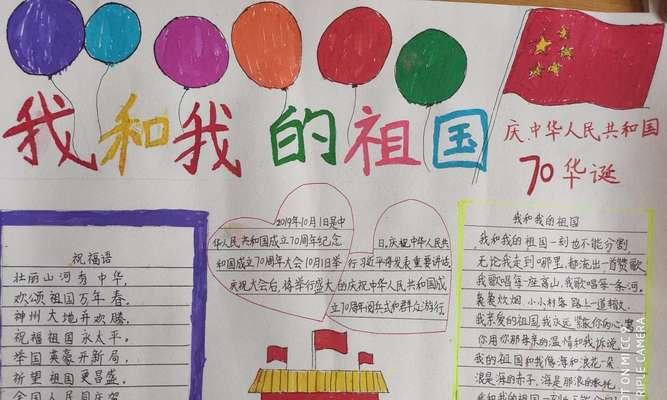 我和我的祖国
庆中华人民共和国
70华诞
祝福语
壮丽山河秀中华,
欢颂祖国万年春。
神州大地开欢腾,
祝福祖国永太平。
举国英豪开新局,
祈望祖国更昌盛。
全国人民同庆贺
2019年10月1是中
华人民共和国成立70周年纪念
日。庆祝中华人民共
和国成立70周年大会10月1日举
行习近平将发表重要讲话,
庆祝大会后,将举行盛大
的庆祝中华人民共和国成
立70周年阅兵式和群众游行。
我和我的祖国
我和我的祖国一刻也不能分割
无论我走到哪里,都流出一首赞歌
我歌唱每一座高山,我歌唱每一条河,
袅袅炊烟,小小村落,路上一道辙。
我亲爱的祖国,我永远紧依你的心窝
你用你那母亲的温情和我诉说
我的祖国和我像海和浪花一朵
浪是海的赤子,海是那浪的依托,
TRIPLE CAMERA